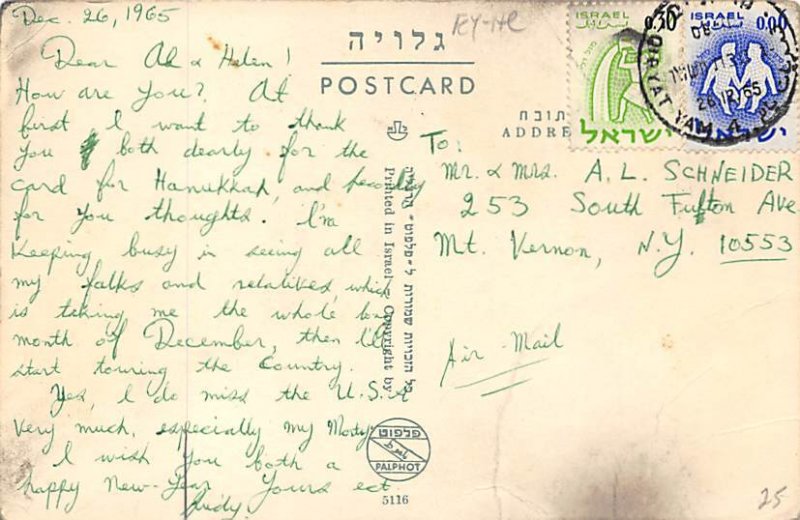 Dec. 26, 1965
Dear Al & Helen!
How are you? At
first I want to thank
you both dearly for the
card for Hanukkah, and secondly
for you thoughts. I'm
keeping busy in seeing all
my folks and relatives, which
is taking me the whole long
month of December, then I'll
start touring the Country.
Yes, I do miss the U.S.A
very much, especially my Morty.
I wish you both a
happy New-Year Yours ect
Judy.
גלויה
POSTCARD
תובת
ADDRE
To:
Mr. & Mrs. A. L. SCHNEIDER
253 South Fulton Ave
Mt. Vernon, N.Y. 10553
Air Mail
Printed in Israel - Copyright by
כל הזכויות שמורות ל-פלפוט-
פלפוט
PALPHOT
5116
ISRAEL 0.30
ישראל
ISRAEL
ישראל
QIRYAT YAM
26 12 65
25